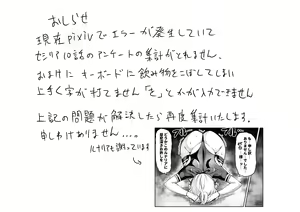 おしらせ
現在pixivでエラーが発生していて
セシリア10話のアンケートの集計がとれません。
おまけにキーボードに飲み物をこぼしてしまい
上手く字が打てません「を」とかが入力できません
上記の問題が解決したら再度集計いたします。
申しわけありません....。
ルナリアも謝っています